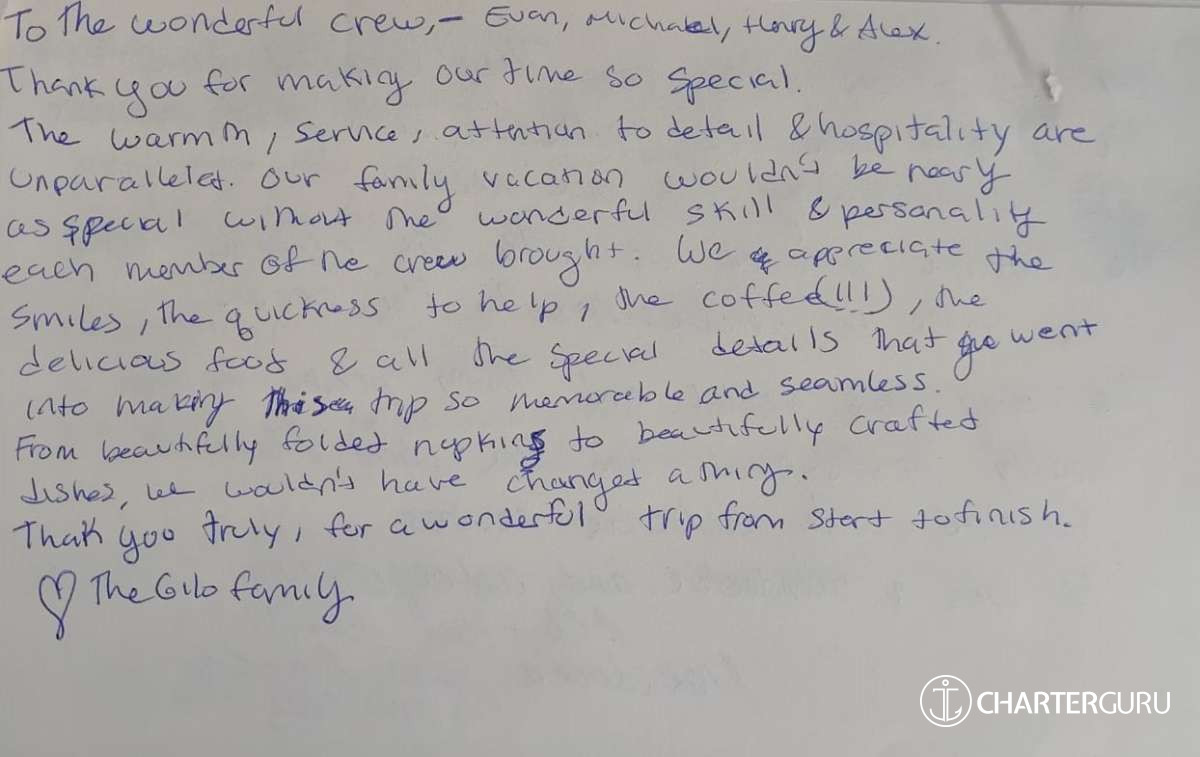 To The wonderful crew,- Evan, Michael, Henry & Alex.
Thank you for making our time so special.
The warmth, service, attention to detail & hospitality are
unparalleled. Our family vacation wouldn't be nearly
as special without the wonderful skill & personality
each member of the crew brought. We appreciate the
smiles, the quickness to help, the coffee(!!!), the
delicious food & all the special details that went
into making this trip so memorable and seamless.
From beautifully folded napkins to beautifully crafted
dishes, we wouldn't have changed a thing.
Thank you truly, for a wonderful trip from start to finish.
♡ The Gilo family
CHARTERGURU